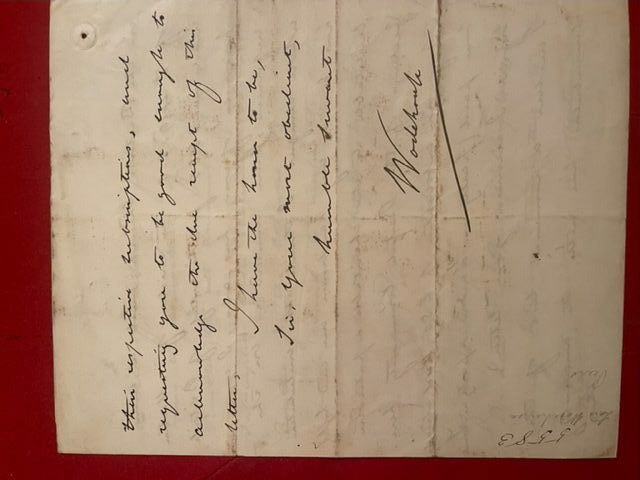 their respective subscriptions, and
requesting you to be good enough to
acknowledge the due receipt of this
letter,
I have the honor to be,
Sir, your most obedient,
humble servant
Wodehouse
5583